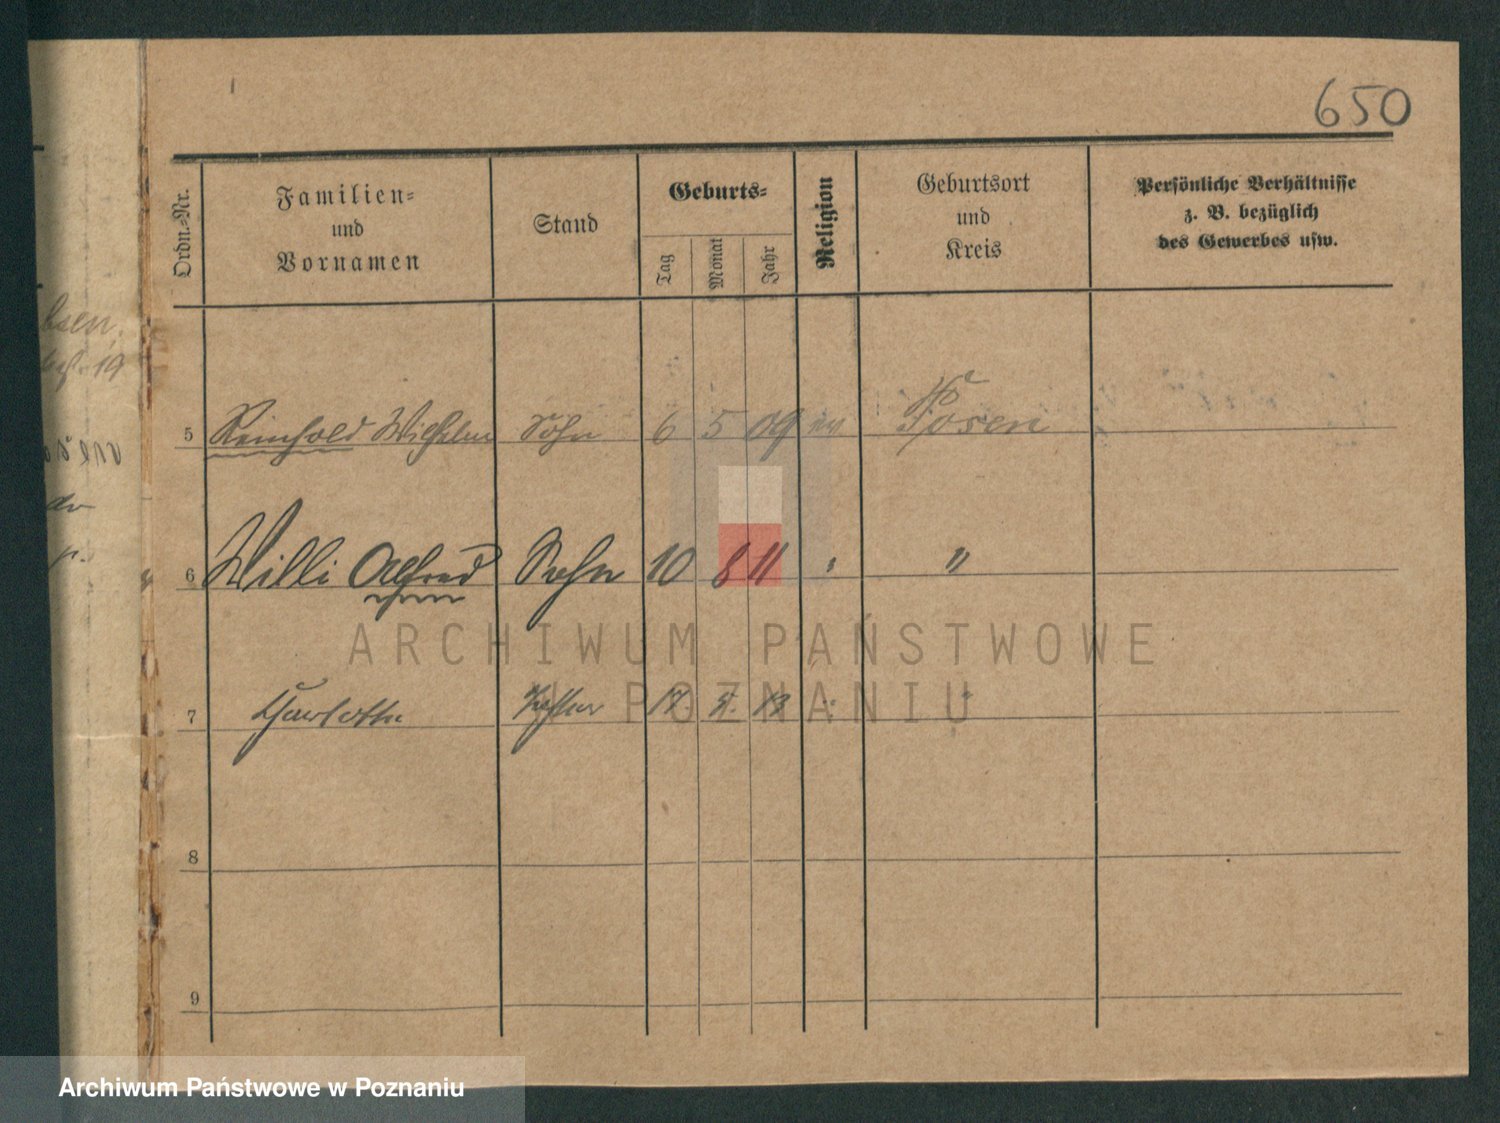 650
Ordn.-Nr.
Familien-
und
Vornamen
Stand
Geburts-
Tag
Monat
Jahr
Religion
Geburtsort
und
Kreis
Persönliche Verhältnisse
z. B. bezüglich
des Gewerbes usw.
5 Reinhold Wilhelm Sohn 6 5 09 ev Posen
6 Willi Alfred Sohn 10 8 11 " "
7 Charlotte 17.
8
9
ARCHIWUM PAŃSTWOWE
W POZNANIU
Archiwum Państwowe w Poznaniu